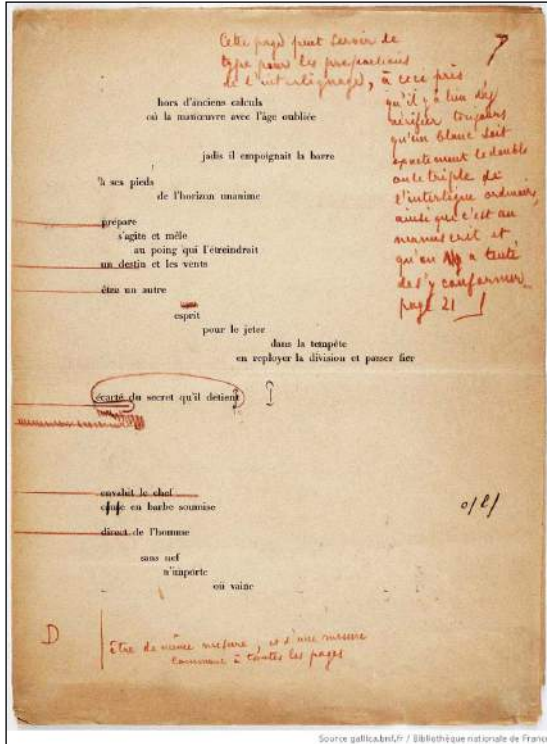 Cette page peut servir de
type pour les proportions
de l'interlignage, à ceci près
qu'il y a lieu de
vérifier toujours
qu'un blanc soit
exactement le double
ou le triple de
l'interligne ordinaire,
ainsi que c'est au
manuscrit et
qu'on a tenté
de s'y conformer
page 21
7
hors d'anciens calculs
où la manœuvre avec l'âge oubliée
jadis il empoignait la barre
à ses pieds
de l'horizon unanime
prépare
s'agite et mêle
au poing qui l'étreindrait
un destin et les vents
être un autre
esprit
pour le jeter
dans la tempête
en reployer la division et passer fier
écarté du secret qu'il detient
envahit le chef
en barbe soumise
direct de l'homme
sans nef
n'importe
où vaine
D
Être de même mesure, et d'une mesure
commune à toutes les pages
Source gallica.bnf.fr / Bibliothèque nationale de France